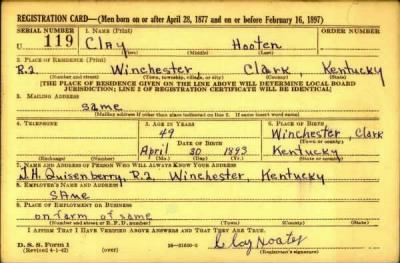 REGISTRATION CARD—(Men born on or after April 28, 1877 and on or before February 16, 1897)
SERIAL NUMBER 1. NAME (Print) ORDER NUMBER
U 119 Clay Hooten
(First) (Middle) (Last)
2. PLACE OF RESIDENCE (Print)
R.2, Winchester, Clark, Kentucky
(Number and street) (Town, township, village, or city) (County) (State)
[THE PLACE OF RESIDENCE GIVEN ON THE LINE ABOVE WILL DETERMINE LOCAL BOARD
JURISDICTION; LINE 2 OF REGISTRATION CERTIFICATE WILL BE IDENTICAL]
3. MAILING ADDRESS
same
[Mailing address if other than place indicated on line 2. If same insert word same]
4. TELEPHONE 5. AGE IN YEARS 6. PLACE OF BIRTH
49 Winchester, Clark
DATE OF BIRTH (Town or county)
April 30 1893 Kentucky
(Exchange) (Number) (Mo.) (Day) (Yr.) (State or country)
7. NAME AND ADDRESS OF PERSON WHO WILL ALWAYS KNOW YOUR ADDRESS
J.H. Quisenberry, R.2, Winchester, Kentucky
8. EMPLOYER'S NAME AND ADDRESS
same
9. PLACE OF EMPLOYMENT OR BUSINESS
on farm of same
(Number and street or R. F. D. number) (Town) (County) (State)
I AFFIRM THAT I HAVE VERIFIED ABOVE ANSWERS AND THAT THEY ARE TRUE.
D. S. S. Form 1
(Revised 4-1-42) (over) Clay Hooten
(Registrant's signature)